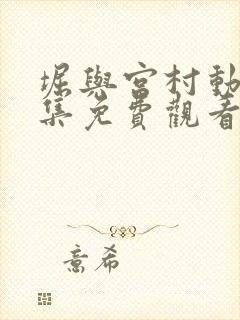 堀與宮村動
集免費觀看
意希